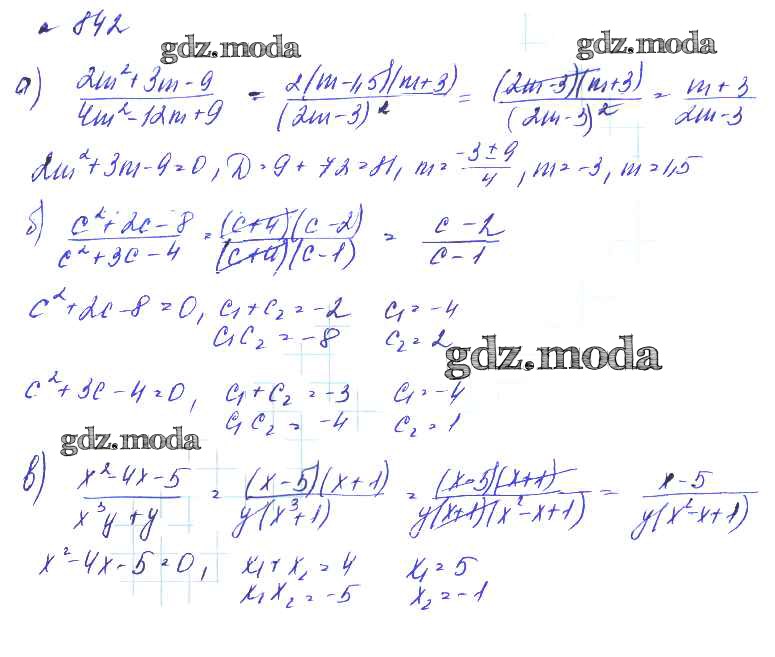 № 842
gdz.moda gdz.moda
а) (2m² + 3m - 9)/(4m² - 12m + 9) = 2(m - 1,5)(m + 3)/(2m - 3)² = (2m - 3)(m + 3)/(2m - 3)² = (m + 3)/(2m - 3)
2m² + 3m - 9 = 0, D = 9 + 72 = 81, m = (-3 ± 9)/4, m = -3, m = 1,5
б) (c² + 2c - 8)/(c² + 3c - 4) = (c + 4)(c - 2)/(c + 4)(c - 1) = (c - 2)/(c - 1)
c² + 2c - 8 = 0, c₁ + c₂ = -2 c₁ = -4
c₁c₂ = -8 c₂ = 2
gdz.moda
c² + 3c - 4 = 0, c₁ + c₂ = -3 c₁ = -4
c₁c₂ = -4 c₂ = 1
gdz.moda
в) (x² - 4x - 5)/(x³y + y) = (x - 5)(x + 1)/y(x³ + 1) = (x - 5)(x + 1)/y(x + 1)(x² - x + 1) = (x - 5)/y(x² - x + 1)
x² - 4x - 5 = 0, x₁ + x₂ = 4 x₁ = 5
x₁x₂ = -5 x₂ = -1